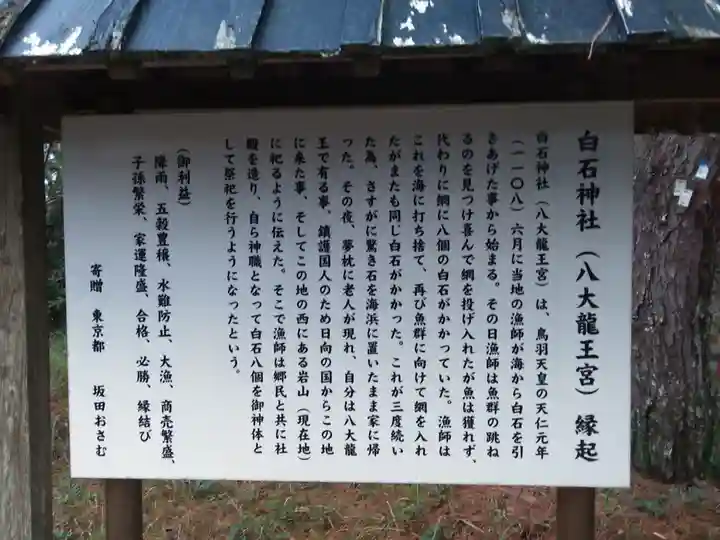 白石神社（八大龍王宮）縁起
白石神社（八大龍王宮）は、鳥羽天皇の天仁元年
（一一〇八）六月に当地の漁師が海から白石を引
きあげた事から始まる。その日漁師は魚群の跳ね
るのを見つけ喜んで網を投げ入れたが魚は獲れず、
代わりに網に八個の白石がかかっていた。漁師は
これを海に打ち捨て、再び魚群に向けて網を入れ
たがまたも同じ白石がかかった。これが三度続い
た為、さすがに驚き石を海浜に置いたまま家に帰
った。その夜、夢枕に老人が現れ、自分は八大龍
王で有る事、鎮護国人のため日向の国からこの地
に来た事、そしてこの地の西にある岩山（現在地）
に祀るように伝えた。そこで漁師は郷民と共に社
殿を造り、自ら神職となって白石八個を御神体と
して祭祀を行うようになったという。
（御利益）
降雨、五穀豊穣、水難防止、大漁、商売繁盛、
子孫繁栄、家運隆盛、合格、必勝、縁結び
寄贈　東京都　坂田おさむ